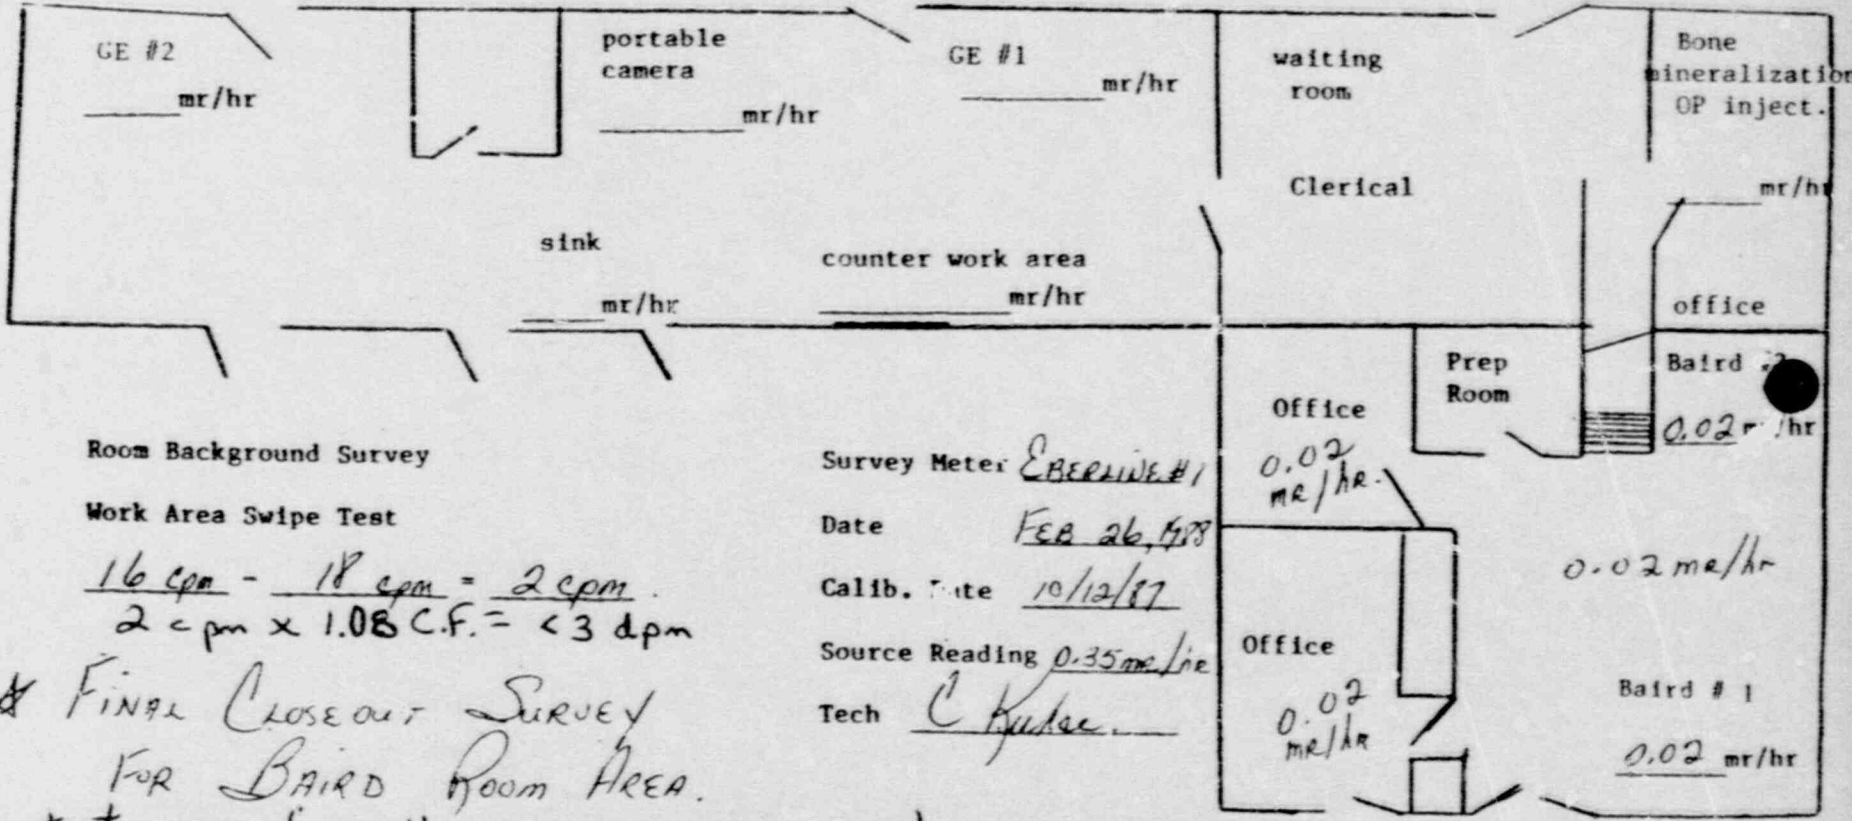 GE #2
mr/hr
portable
camera
mr/hr
GE #1
mr/hr
waiting
room
Bone
mineralization
OP inject.
Clerical
mr/hr
sink
mr/hr
counter work area
mr/hr
office
Prep
Room
Baird
0.02 mr/hr
Office
0.02
mR/hR.
Room Background Survey
Work Area Swipe Test
16 cpm - 18 cpm = 2 cpm.
2 cpm x 1.08 C.F. = <3 dpm
* FINAL CLOSEOUT SURVEY
FOR BAIRD ROOM AREA.
Survey Meter EBERLINE #1
Date FEB 26, 1988
Calib. Date 10/12/87
Source Reading 0.35 mR/hR
Tech C
0.02 mR/hr
Office
0.02
mR/hR
Baird # 1
0.02 mr/hr